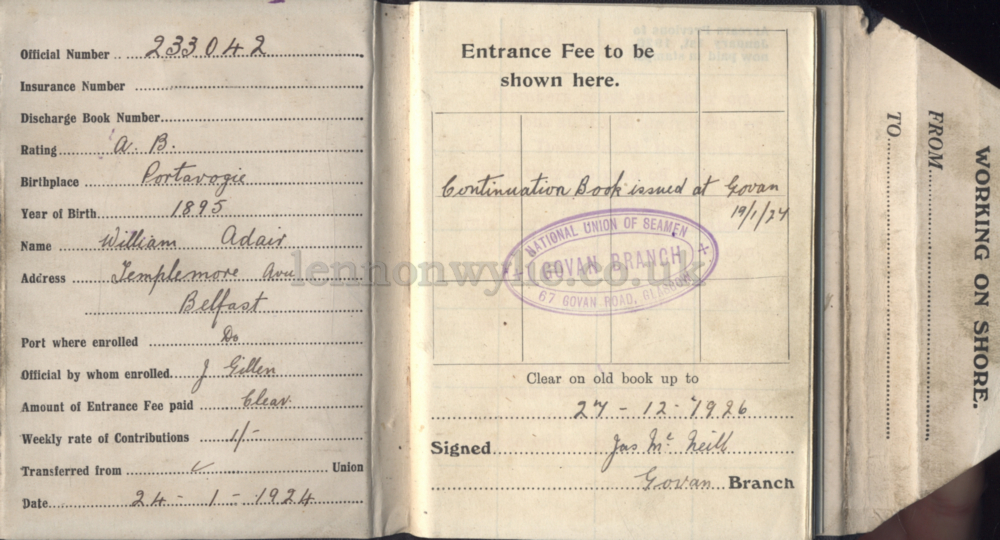 Official Number .. 233042
Insurance Number
Discharge Book Number
Rating A. B.
Birthplace Portavogie
Year of Birth 1895
Name William Adair
Address Templemore Avu
Belfast
Port where enrolled Do
Official by whom enrolled J Gillen
Amount of Entrance Fee paid Clear
Weekly rate of Contributions 1/-
Transferred from ✓ Union
Date 24 - 1 - 1924
Entrance Fee to be
shown here.
Continuation Book issued at Govan
19/1/27
NATIONAL UNION OF SEAMEN
GOVAN BRANCH
67 GOVAN ROAD, GLASGOW
Clear on old book up to
27 - 12 - 1926
Signed Jas Mc Neill
Govan Branch
WORKING ON SHORE.
FROM
TO
lennonwylie.co.uk